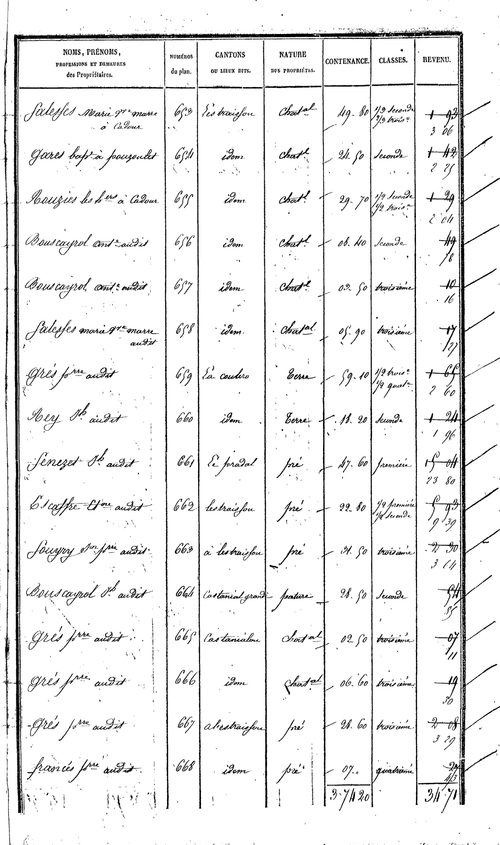 NOMS, PRÉNOMS, PROFESSIONS ET DEMEURES des Propriétaires. NUMÉROS du plan. CANTONS OU LIEUX DITS. NATURE DES PROPRIÉTÉS. CONTENANCE. CLASSES. REVENU.
Salesses Marie Vve marre à Cadour 653 Lestraissou Chatal 49. 80 1/2 seconde 1/2 trois. 1 93
3 06
Garés bapt. à pouzoulet 654 idem Chatl 24. 50 seconde 1 42
2 25
Rouziés les hers à Cadour 655 idem Chatl 29. 70 1/2 seconde 1/2 trois. 1 29
2 04
Bouscayrol ant. audit 656 idem Chatl 08. 40 seconde 49
78
Bouscayrol ant. audit 657 idem Chatl 02. 50 troisième 10
16
Salesses marie Vve marre audit 658 idem Chatal 05. 90 troisième 17
27
Grés prre audit 659 La Coutero Terre 59. 10 1/2 trois. 1/2 quat. 1 65
2 60
Rey audit 660 idem Terre 18. 20 seconde 1 24
1 96
Senezet audit 661 Le pradal pré 47. 60 première 15 04
23 80
Escaffre audit 662 lestraissou pré 22. 80 1/2 première 1/2 seconde 5 93
9 39
audit 663 à lestraissou pré 31. 50 troisième 2 30
3 64
Bouscayrol audit 664 Castanial grand pature 28. 50 seconde 54
Grés prre audit 665 Castanialou Chatal 02. 50 troisième 07
11
Grés prre audit 666 idem Chatal 06. 60 troisième 19
30
Grés prre audit 667 a lestraissou pré 28. 60 troisième 2 08
3 29
francés prre audit 668 idem pré 07. quatrième
3. 74 20 34. 71